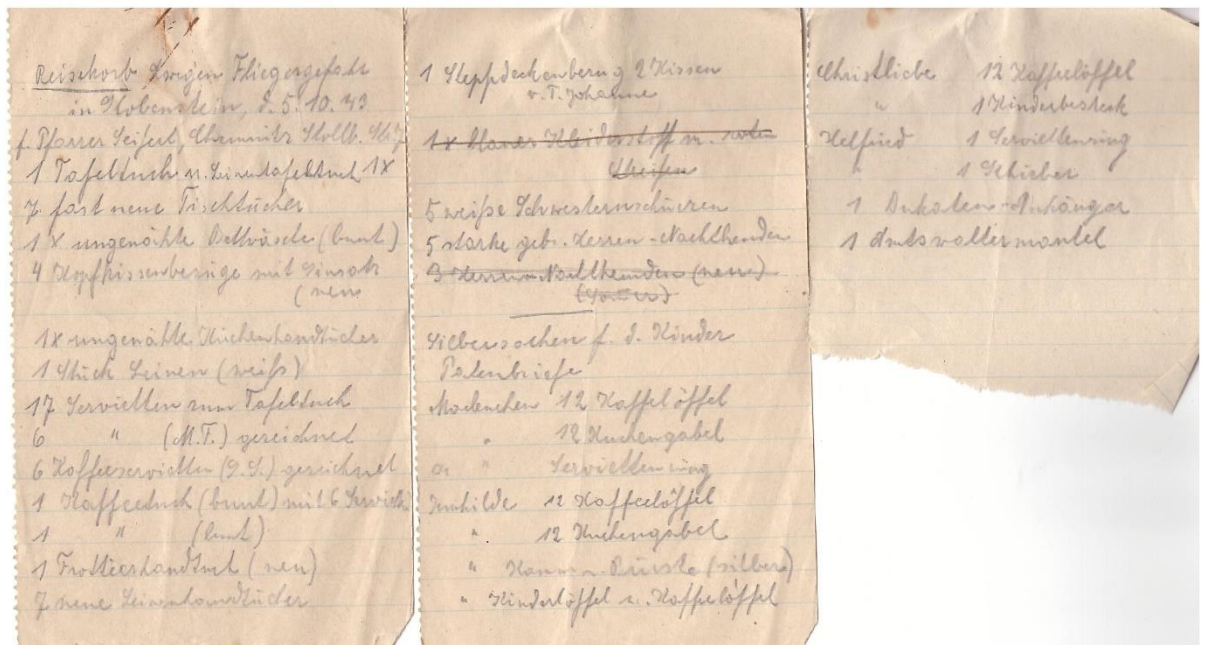 Reisekorb wegen Fliegergefahr
in Hohenstein, d. 5.10.43
f. Pfarrer Seifert, Chemnitz Stollb. Str. 7
1 Tafeltuch u. Leinentafeltuch 1x
7 fast neue Tischtücher
1 x ungenähte Bettwäsche (bunt)
4 Kopfkissenbezüge mit Einsatz
(neu
1x ungenähte Küchenhandtücher
1 Stück Leinen (weiß)
17 Servietten zum Tafeltuch
6 " (M.T.) gezeichnet
6 Kaffeeservietten (J.S.) gezeichnet
1 Kaffeetuch (bunt) mit 6 Serviett
1 " (bunt)
1 Frottierhandtuch (neu)
7 neue Leinenhandtücher
1 Steppdeckenbezug 2 Kissen
v. T. Johanne
1x blauer Kleiderstoff m. roten
Streifen
5 weiße Schwesternschürzen
5 starke gebr. Herren-Nachthemden
3 Herren-Nachthemden (neu)
Silbersachen f. d. Kinder
Patenbriefe
12 Kaffelöffel
" 12 Kuchengabel
" Serviettenring
Irmhilde 12 Kaffeelöffel
" 12 Kuchengabel
" Kamm u. Bürste (silber)
" Kinderlöffel u. Kaffelöffel
Christliebe 12 Kaffelöffel
" 1 Kinderbesteck
Helfried 1 Serviettenring
" 1 Schieber
1 Dukaten-Anhänger
1 Amtswaltermantel